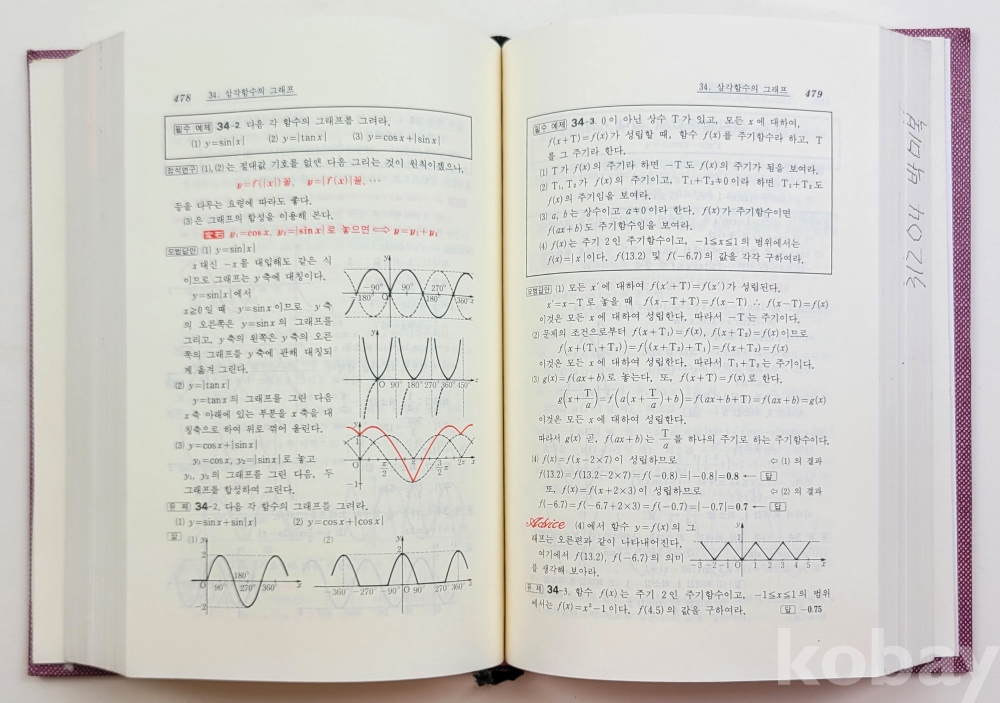 478 34. 삼각함수의 그래프
필수 예제 34-2. 다음 각 함수의 그래프를 그려라.
(1) y=sin|x| (2) y=|tan x| (3) y=cos x+|sin x|
정석연구 (1), (2)는 절대값 기호를 없앤 다음 그리는 것이 원칙이겠으나,
y=f(|x|)꼴, y=|f(x)|꼴, …
등을 다루는 요령에 따라도 좋다.
(3)은 그래프의 합성을 이용해 본다.
정석 y₁=cos x, y₂=|sin x|로 놓으면 ⟺ y=y₁+y₂
모범답안 (1) y=sin|x|
x 대신 -x를 대입해도 같은 식
이므로 그래프는 y축에 대칭이다.
y=sin|x|에서
x≧0일 때 y=sin x이므로 y축
의 오른쪽은 y=sin x의 그래프를
그리고, y축의 왼쪽은 y축의 오른
쪽의 그래프를 y축에 관해 대칭되
게 옮겨 그린다.
(2) y=|tan x|
y=tan x의 그래프를 그린 다음
x축 아래에 있는 부분을 x축을 대
칭축으로 하여 위로 꺾어 올린다.
(3) y=cos x+|sin x|
y₁=cos x, y₂=|sin x|로 놓고
y₁, y₂의 그래프를 그린 다음, 두
그래프를 합성하여 그린다.
y
-90° 180°
180° O 90° 270° 360° x
y
O 90° 180° 270° 360° 450° x
y
1
O π/2 π 3/2π 2π x
-1
유제 34-2. 다음 각 함수의 그래프를 그려라.
(1) y=sin x+sin|x| (2) y=cos x+|cos x|
답 (1) (2)
y
2
180°
O 90° 270° 360° x
-2
y
2
-360° -270° -90° O 90° 270° 360° x
34. 삼각함수의 그래프 479
필수 예제 34-3. 0이 아닌 상수 T가 있고, 모든 x에 대하여,
f(x+T)=f(x)가 성립할 때, 함수 f(x)를 주기함수라 하고, T
를 그 주기라 한다.
(1) T가 f(x)의 주기라 하면 -T도 f(x)의 주기가 됨을 보여라.
(2) T₁, T₂가 f(x)의 주기이고, T₁+T₂≠0이라 하면 T₁+T₂도
f(x)의 주기임을 보여라.
(3) a, b는 상수이고 a≠0이라 한다. f(x)가 주기함수이면
f(ax+b)도 주기함수임을 보여라.
(4) f(x)는 주기 2인 주기함수이고, -1≦x≦1의 범위에서는
f(x)=|x|이다. f(13.2) 및 f(-6.7)의 값을 각각 구하여라.
모범답안 (1) 모든 x′에 대하여 f(x′+T)=f(x′)가 성립된다.
x′=x-T로 놓을 때 f(x-T+T)=f(x-T) ∴ f(x-T)=f(x)
이것은 모든 x에 대하여 성립한다. 따라서 -T는 주기이다.
(2) 문제의 조건으로부터 f(x+T₁)=f(x), f(x+T₂)=f(x)이므로
f(x+(T₁+T₂))=f((x+T₂)+T₁)=f(x+T₂)=f(x)
이것은 모든 x에 대하여 성립한다. 따라서 T₁+T₂는 주기이다.
(3) g(x)=f(ax+b)로 놓는다. 또, f(x+T)=f(x)로 한다.
g(x+T/a)=f(a(x+T/a)+b)=f(ax+b+T)=f(ax+b)=g(x)
이것은 모든 x에 대하여 성립한다.
따라서 g(x) 곧, f(ax+b)는 T/a를 하나의 주기로 하는 주기함수이다.
(4) f(x)=f(x-2×7)이 성립하므로 ⇦ (1)의 결과
f(13.2)=f(13.2-2×7)=f(-0.8)=|-0.8|=0.8 ← 답
또, f(x)=f(x+2×3)이 성립하므로 ⇦ (2)의 결과
f(-6.7)=f(-6.7+2×3)=f(-0.7)=|-0.7|=0.7 ← 답
Advice (4)에서 함수 y=f(x)의 그
래프는 오른편과 같이 나타내어진다.
여기에서 f(13.2), f(-6.7)의 의미
를 생각해 보아라.
y
1
-3 -2 -1 O 1 2 3 4 5 x
유제 34-3. 함수 f(x)는 주기 2인 주기함수이고, -1≦x≦1의 범위
에서는 f(x)=x²-1이다. f(4.5)의 값을 구하여라. 답 -0.75
kobay